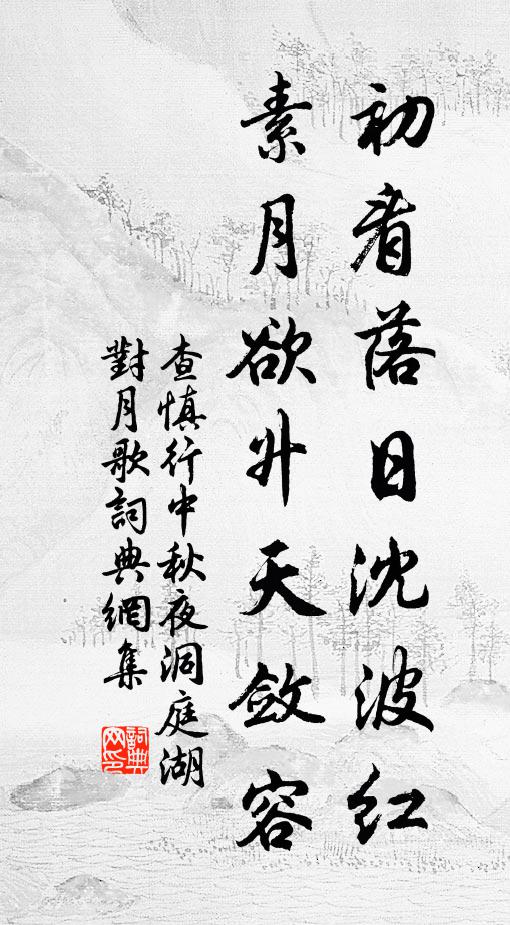 初看落日沈波紅
素月欲升天斂容
查慎行中秋夜洞庭湖
對月歌詞典網集
詞典網印